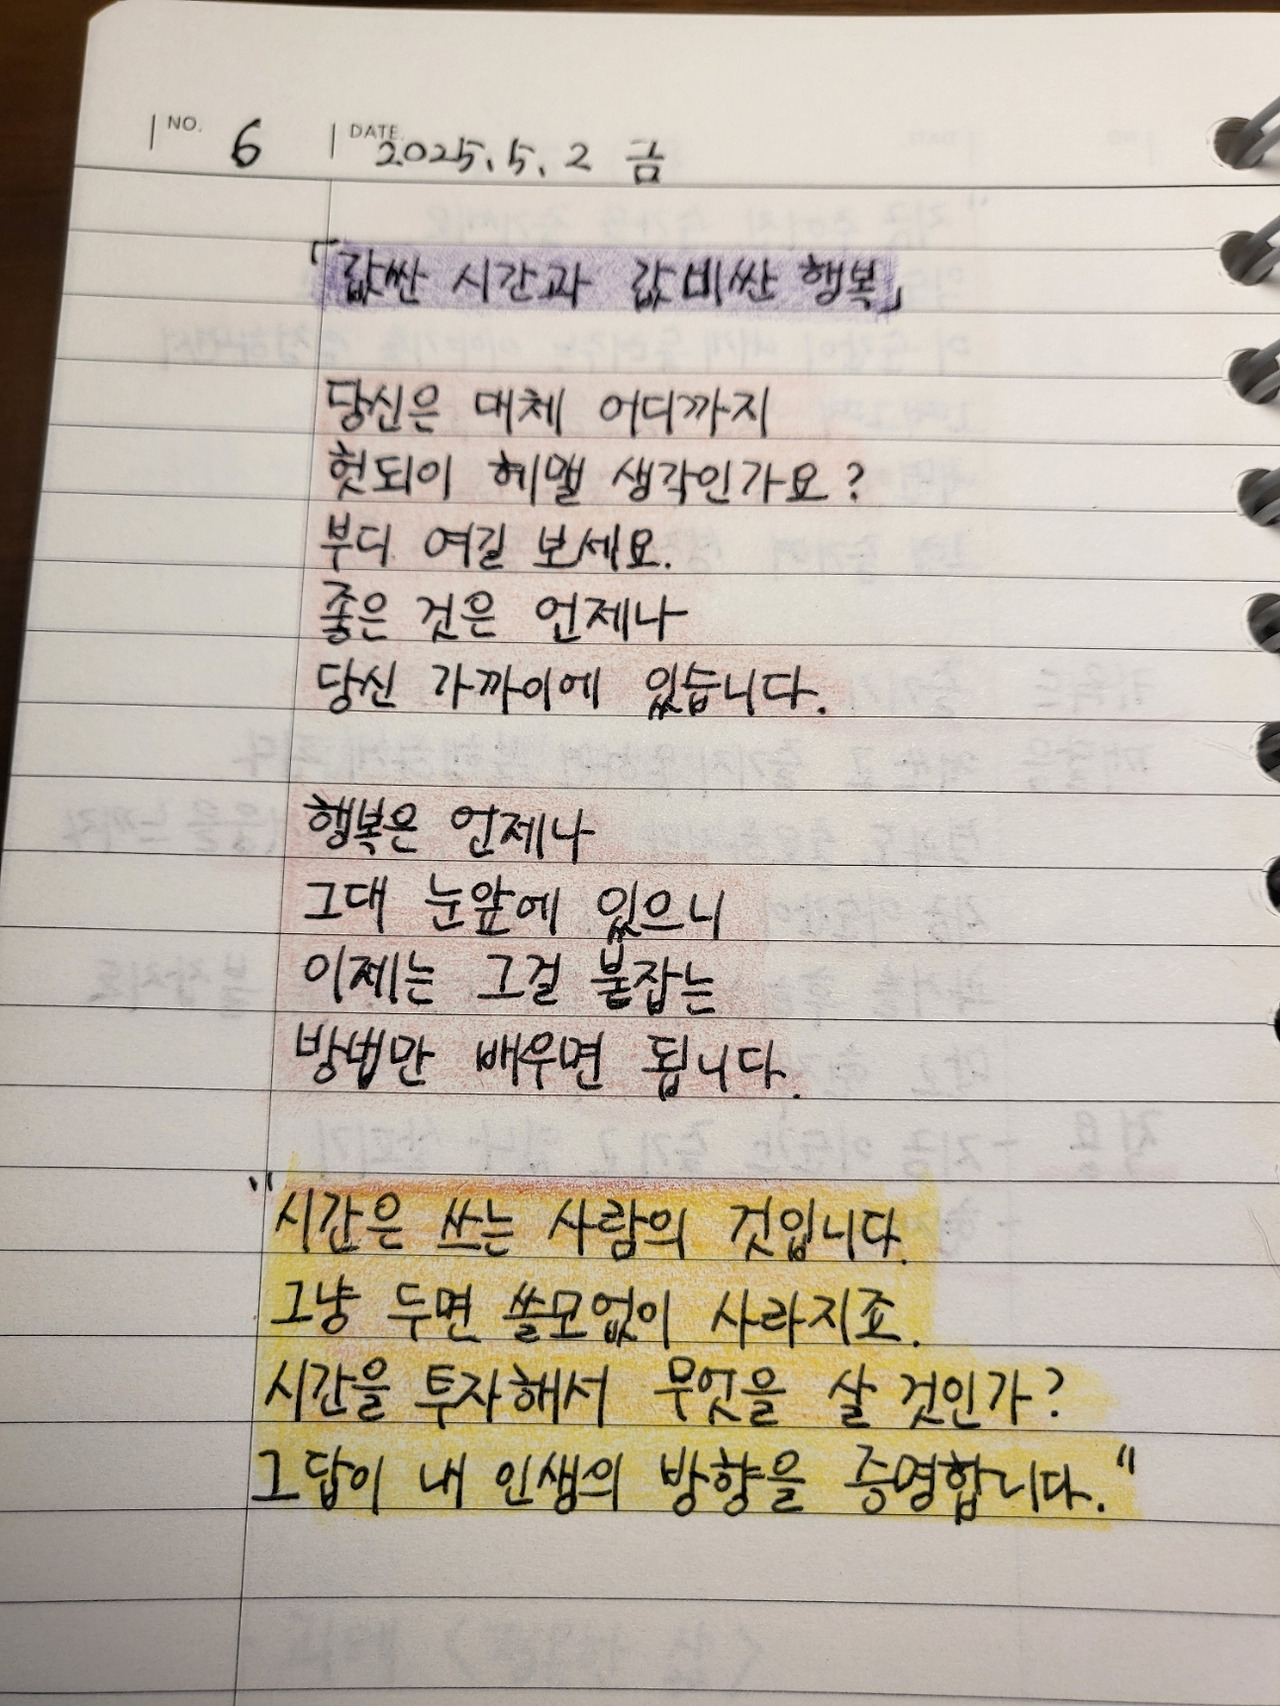 NO. 6 DATE. 2025. 5. 2 금
「값싼 시간과 값비싼 행복」
당신은 대체 어디까지
헛되이 헤맬 생각인가요?
부디 여길 보세요.
좋은 것은 언제나
당신 가까이에 있습니다.
행복은 언제나
그대 눈앞에 있으니
이제는 그걸 붙잡는
방법만 배우면 됩니다.
"시간은 쓰는 사람의 것입니다.
그냥 두면 쓸모없이 사라지죠.
시간을 투자해서 무엇을 살 것인가?
그 답이 내 인생의 방향을 증명합니다."